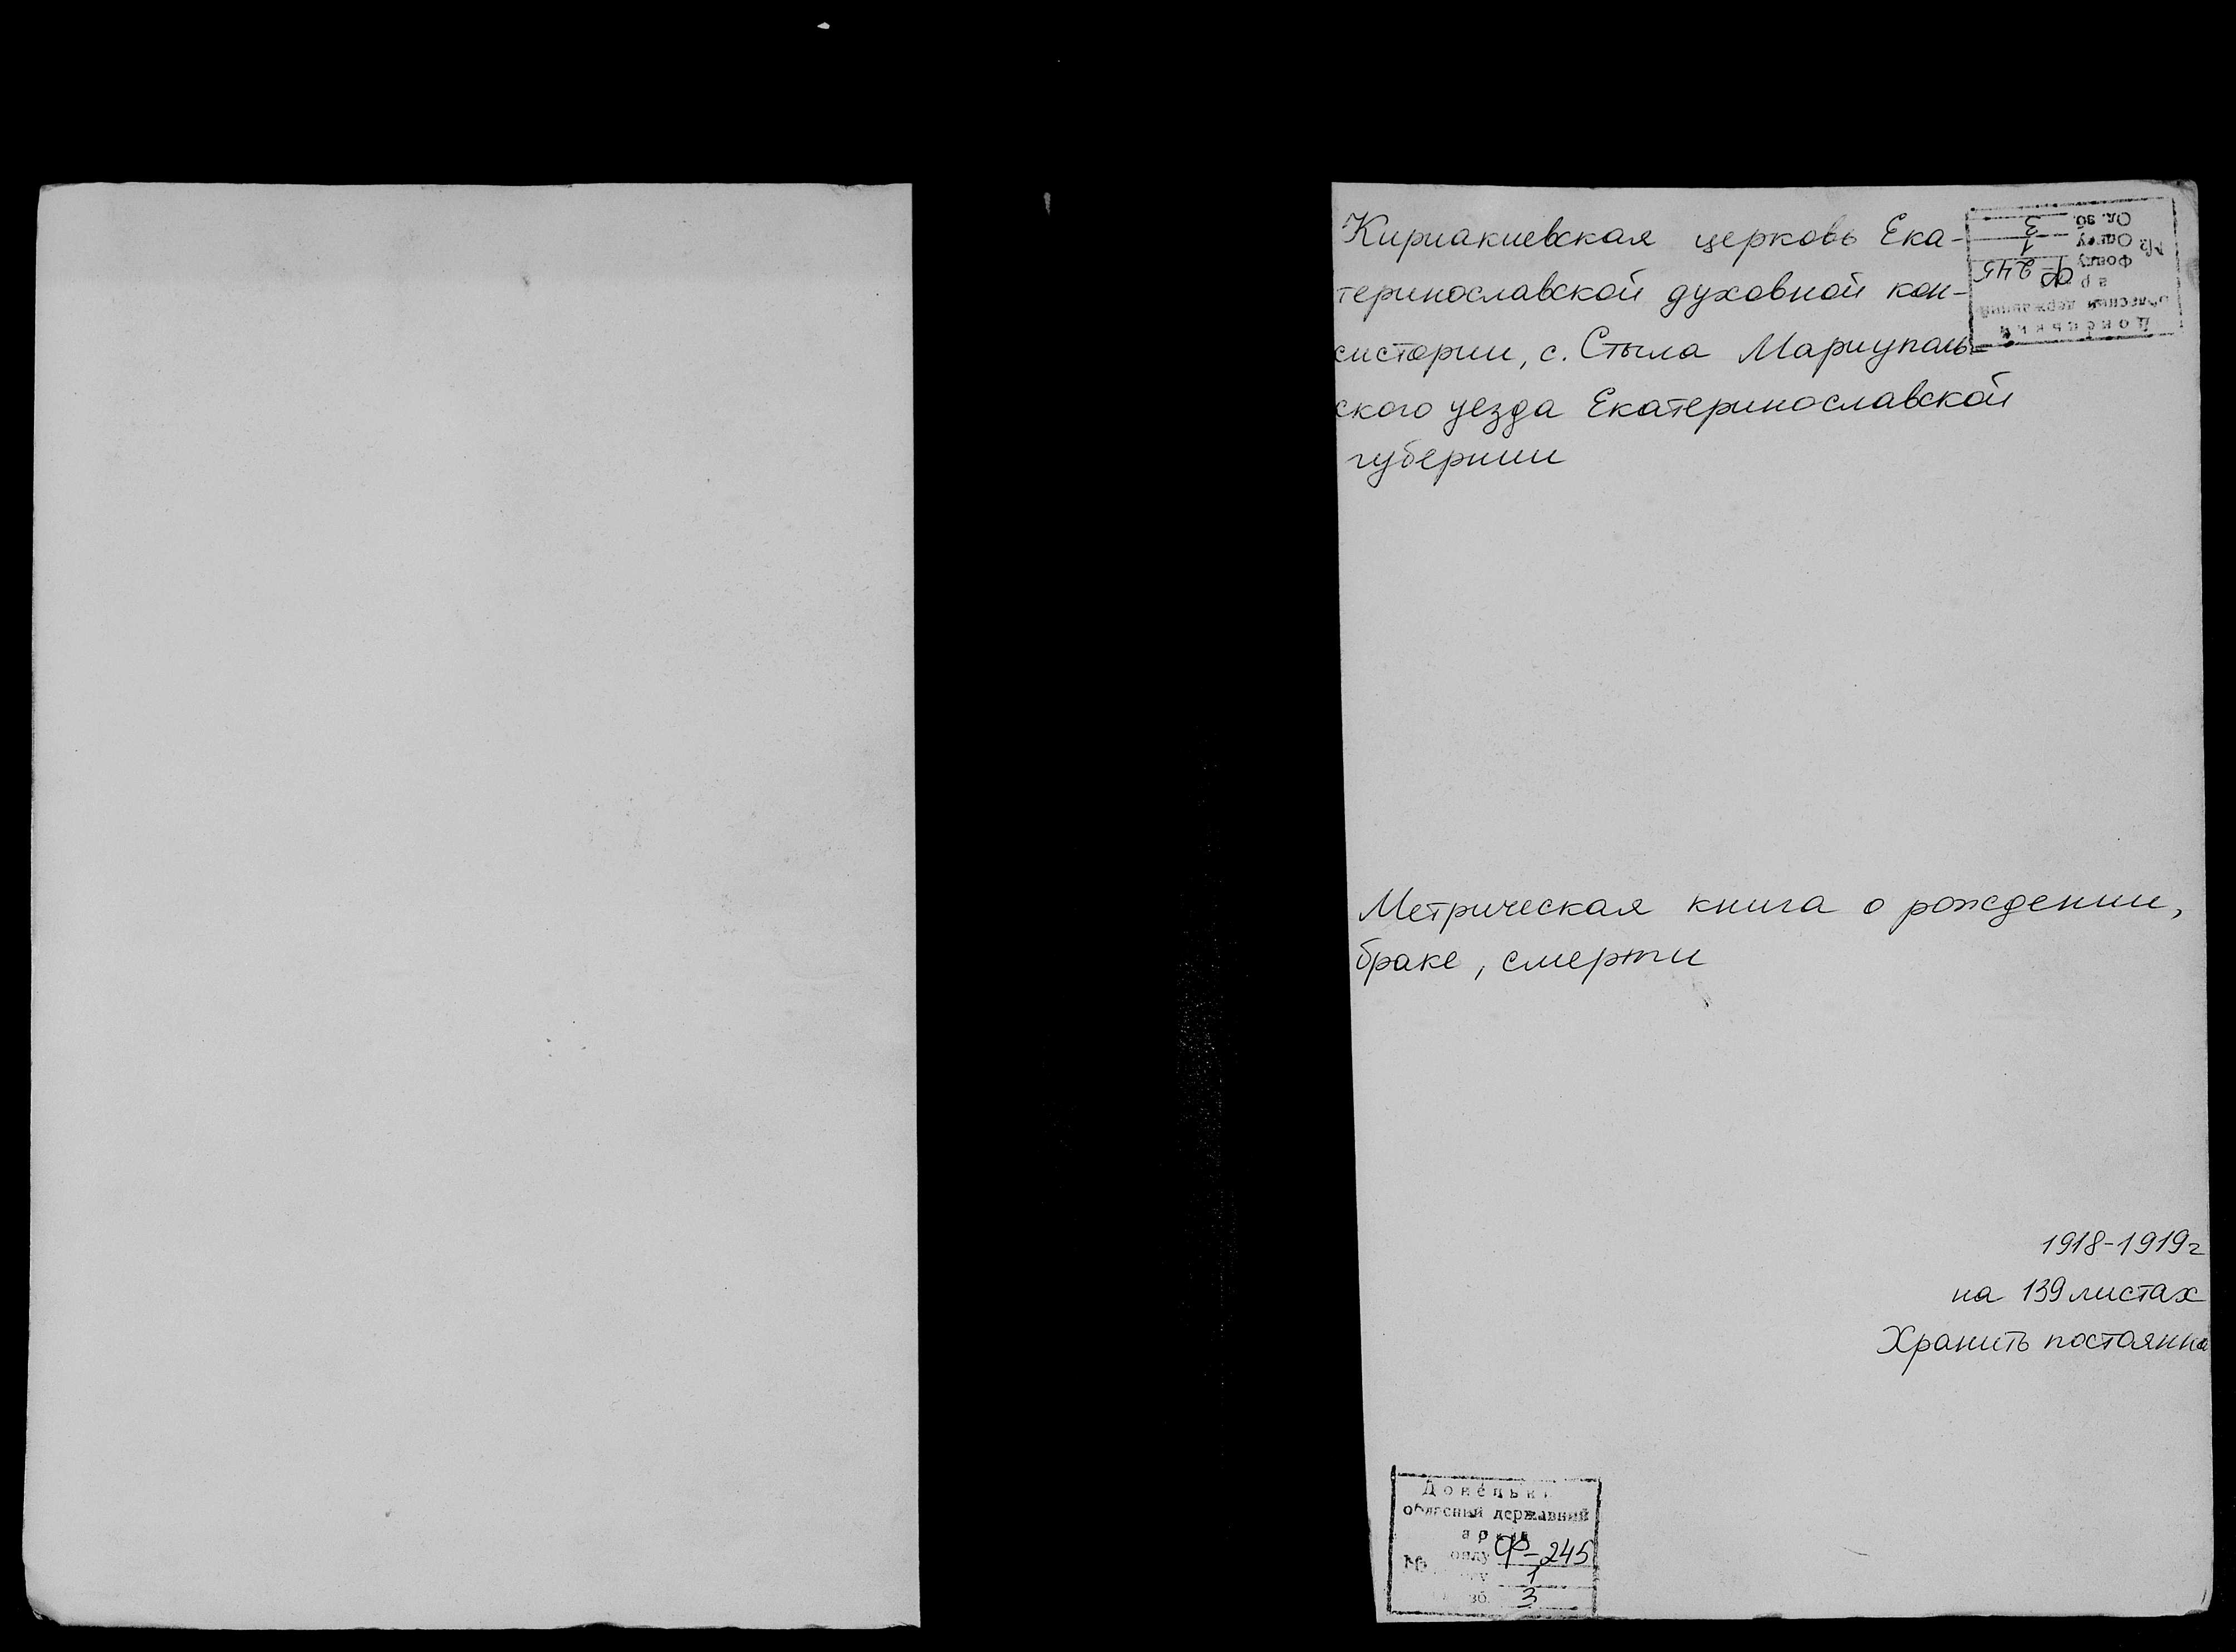 Кириакиевская церковь Ека-
теринославской духовной кон-
систории, с. Стыла Мариуполь-
ского уезда Екатеринославской
губернии
Донецький
обласний державний
Фонду Ф-245
№ Опису 1
Од. зб. 3
Метрическая книга о рождении,
браке, смерти
1918-1919г
на 139 листах
Хранить постоянно
обласний державний
Ф-245
1
зб. 3